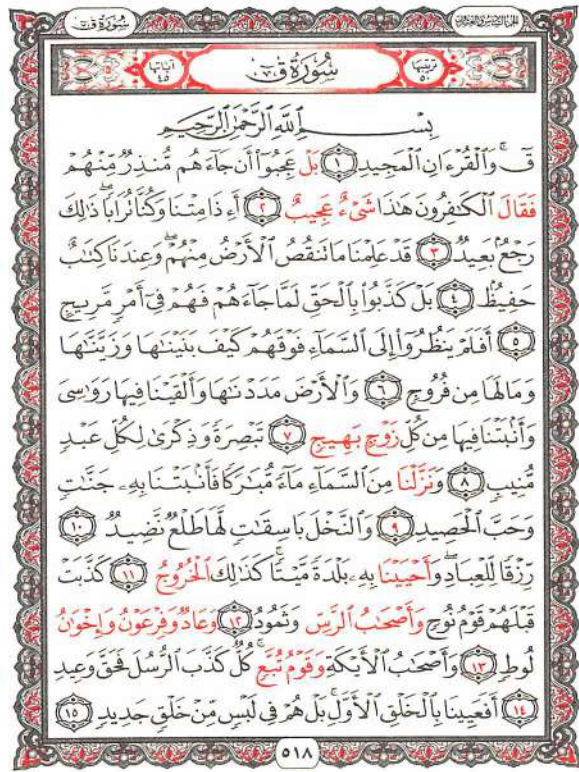 سُورَةُ قٓ الجُزْءُ السَّادِسُ وَالعِشْرُونَ
آياتها ٤٥ سُورَةُ قٓ ترتيبها ٥٠
بِسْمِ ٱللَّهِ ٱلرَّحْمَٰنِ ٱلرَّحِيمِ
قٓ ۚ وَٱلْقُرْءَانِ ٱلْمَجِيدِ ١ بَلْ عَجِبُوٓا۟ أَن جَآءَهُم مُّنذِرٌ مِّنْهُمْ
فَقَالَ ٱلْكَٰفِرُونَ هَٰذَا شَىْءٌ عَجِيبٌ ٢ أَءِذَا مِتْنَا وَكُنَّا تُرَابًا ۖ ذَٰلِكَ
رَجْعٌۢ بَعِيدٌ ٣ قَدْ عَلِمْنَا مَا تَنقُصُ ٱلْأَرْضُ مِنْهُمْ ۖ وَعِندَنَا كِتَٰبٌ
حَفِيظٌۢ ٤ بَلْ كَذَّبُوا۟ بِٱلْحَقِّ لَمَّا جَآءَهُمْ فَهُمْ فِىٓ أَمْرٍ مَّرِيجٍ
٥ أَفَلَمْ يَنظُرُوٓا۟ إِلَى ٱلسَّمَآءِ فَوْقَهُمْ كَيْفَ بَنَيْنَٰهَا وَزَيَّنَّٰهَا
وَمَا لَهَا مِن فُرُوجٍ ٦ وَٱلْأَرْضَ مَدَدْنَٰهَا وَأَلْقَيْنَا فِيهَا رَوَٰسِىَ
وَأَنۢبَتْنَا فِيهَا مِن كُلِّ زَوْجٍۭ بَهِيجٍ ٧ تَبْصِرَةً وَذِكْرَىٰ لِكُلِّ عَبْدٍ
مُّنِيبٍ ٨ وَنَزَّلْنَا مِنَ ٱلسَّمَآءِ مَآءً مُّبَٰرَكًا فَأَنۢبَتْنَا بِهِۦ جَنَّٰتٍ
وَحَبَّ ٱلْحَصِيدِ ٩ وَٱلنَّخْلَ بَاسِقَٰتٍ لَّهَا طَلْعٌ نَّضِيدٌ ١٠
رِّزْقًا لِّلْعِبَادِ ۖ وَأَحْيَيْنَا بِهِۦ بَلْدَةً مَّيْتًا ۚ كَذَٰلِكَ ٱلْخُرُوجُ ١١ كَذَّبَتْ
قَبْلَهُمْ قَوْمُ نُوحٍ وَأَصْحَٰبُ ٱلرَّسِّ وَثَمُودُ ١٢ وَعَادٌ وَفِرْعَوْنُ وَإِخْوَٰنُ
لُوطٍ ١٣ وَأَصْحَٰبُ ٱلْأَيْكَةِ وَقَوْمُ تُبَّعٍ ۚ كُلٌّ كَذَّبَ ٱلرُّسُلَ فَحَقَّ وَعِيدِ
١٤ أَفَعَيِينَا بِٱلْخَلْقِ ٱلْأَوَّلِ ۚ بَلْ هُمْ فِى لَبْسٍ مِّنْ خَلْقٍ جَدِيدٍ ١٥
٥١٨